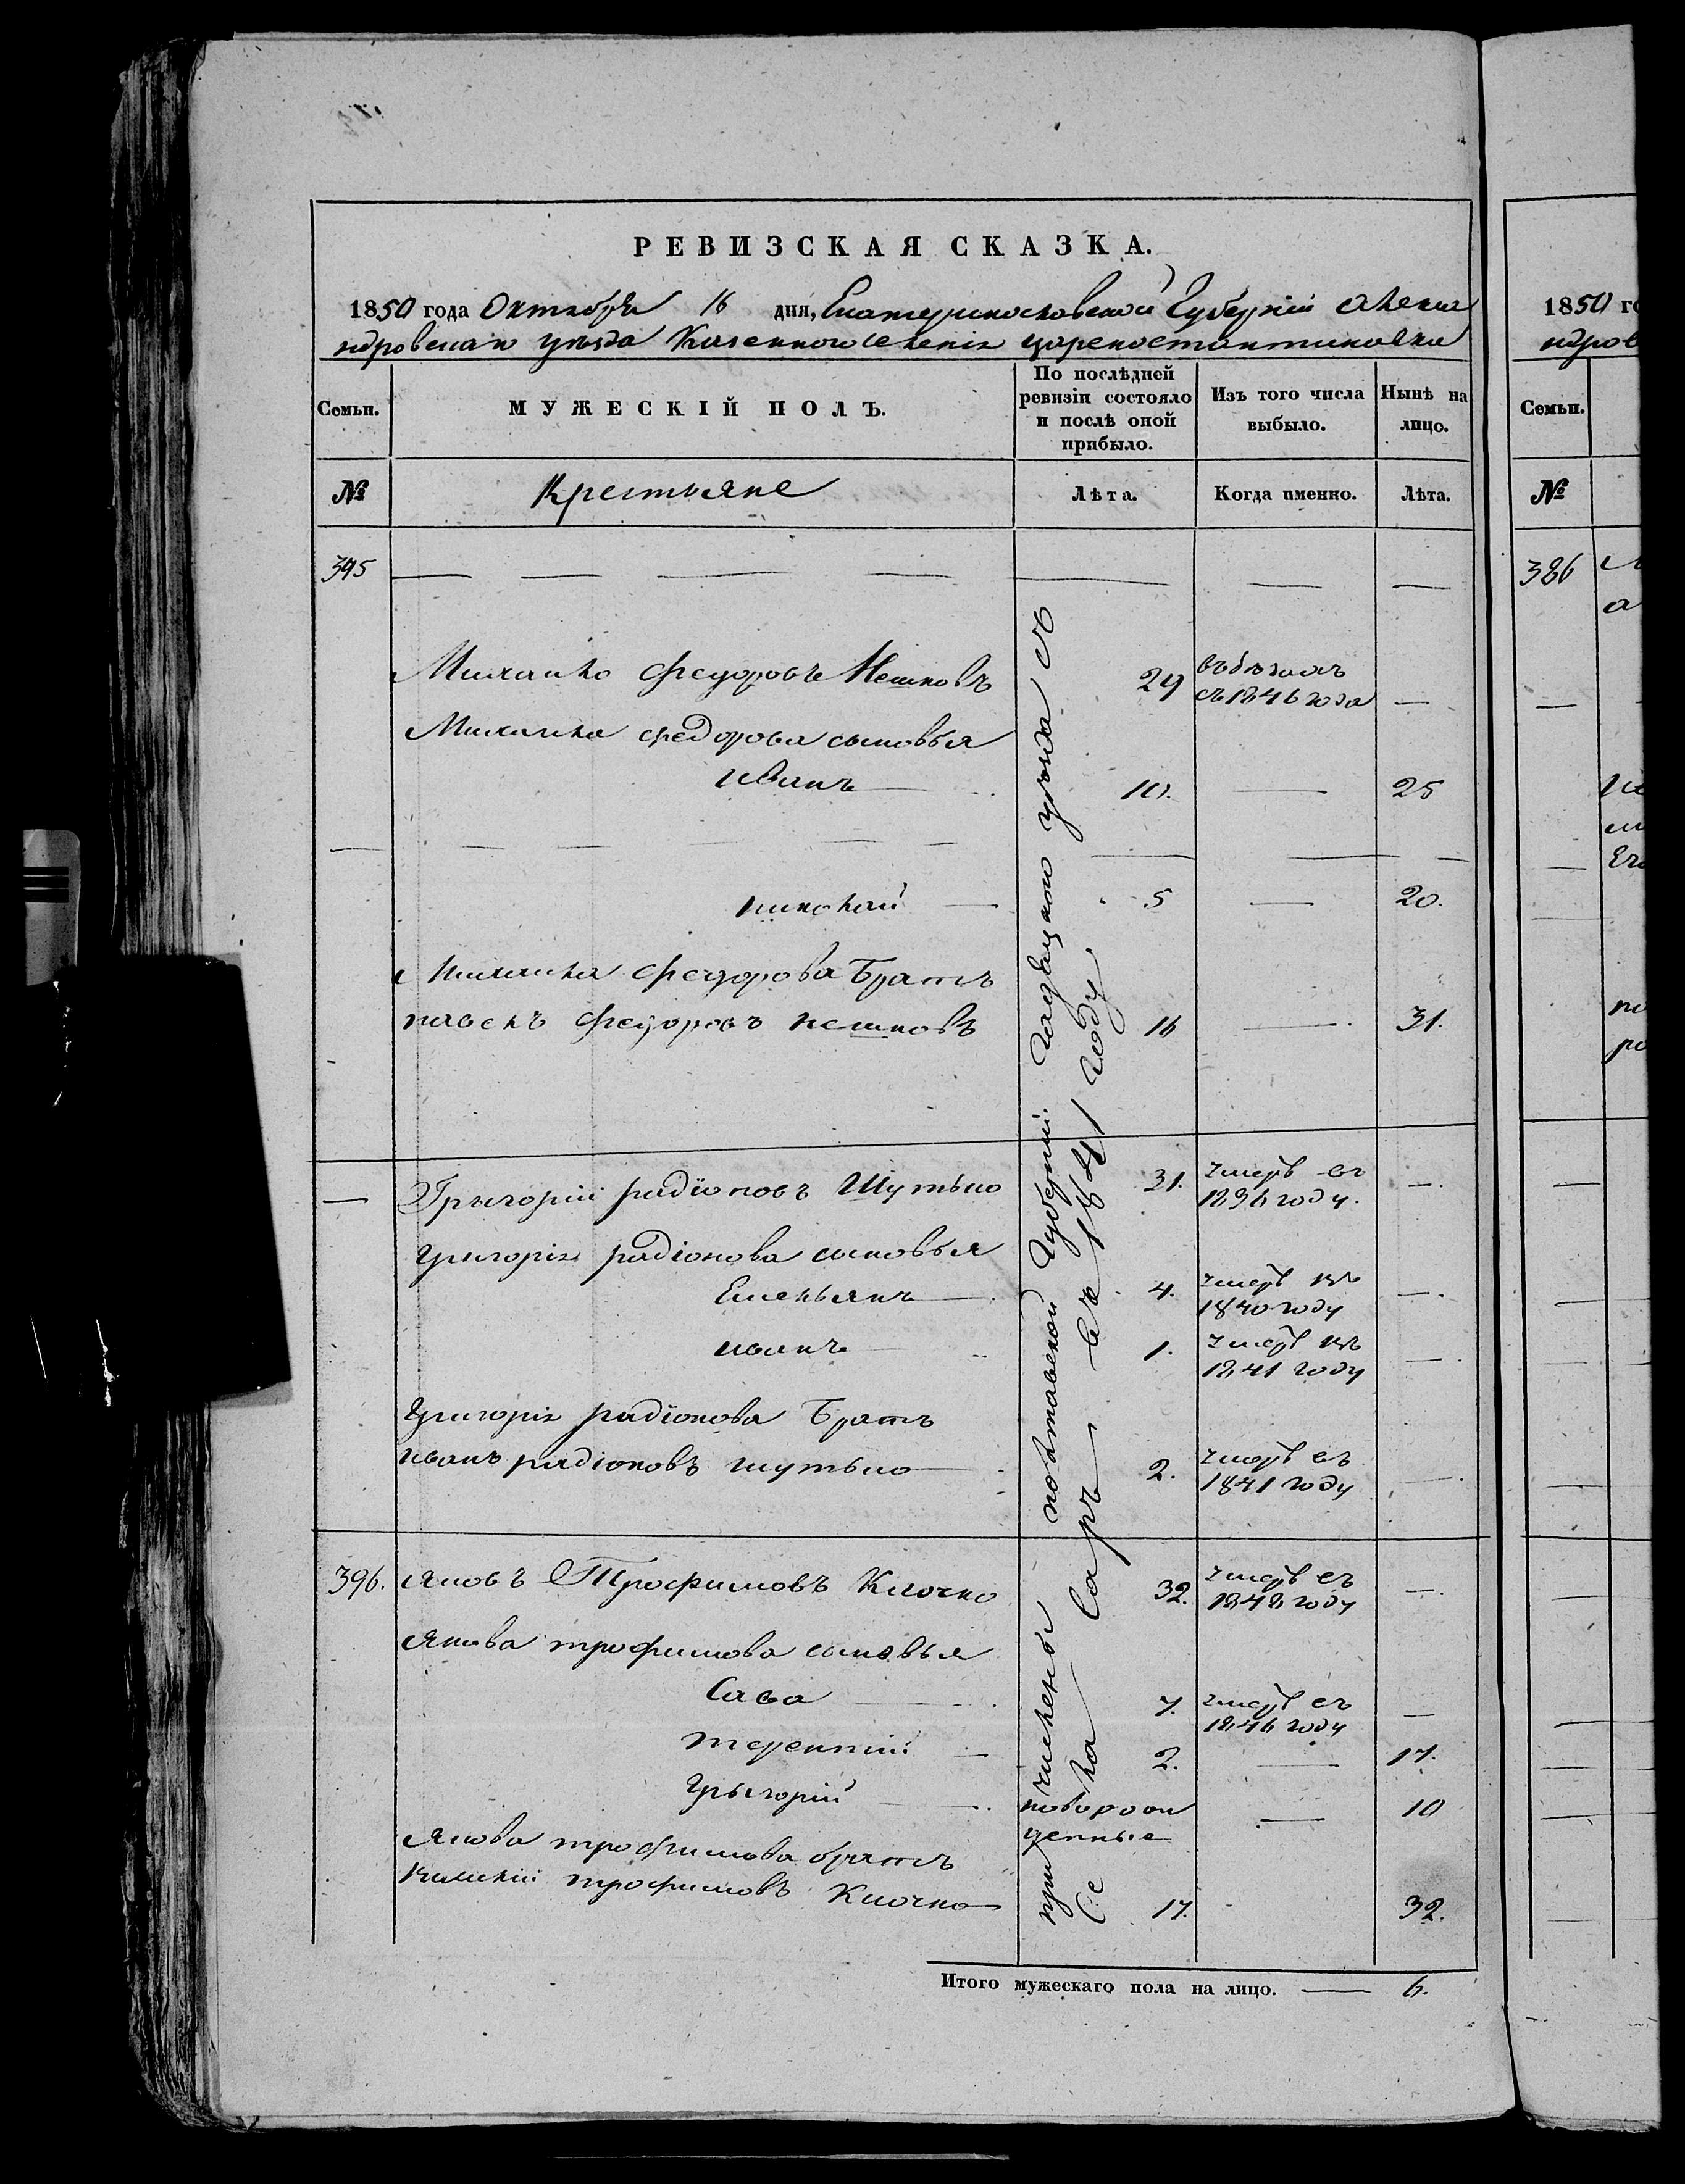 РЕВИЗСКАЯ СКАЗКА.
1850 года Октября 16 дня, Екатеринославской Губерніи Алекса
ндровскаго уѣзда Казенного селенія Цареконстантиновки
Семьи.
МУЖЕСКІЙ ПОЛЪ.
По послѣдней ревизіи состояло и послѣ оной прибыло.
Изъ того числа выбыло.
Нынѣ на лицо.
№
Крестьяне
Лѣта.
Когда именно.
Лѣта.
395
Михайло Федоровъ 29 въ бѣгахъ
съ 1846 года —
Михайла Федорова сыновья
Иванъ — 10. — 25
Николай — 5 — 20.
Михайла Федорова Братъ
Павелъ Федоровъ 16 — 31.
— Григорій радіоновъ Шутько 31. умеръ въ
1836 году. —
Григорія радіонова сыновья
Емельянъ — 4. умеръ въ
1840 году —
иванъ — 1. умеръ въ
1841 году —
Григорія радіонова Братъ
иванъ радіоновъ шутько — 2. умеръ въ
1841 году —
396. Яковъ Трофимовъ Клочко 32. умеръ въ
1848 году —
Якова трофимова сыновья
Сава — 7. умеръ въ
1846 году —
терентій — 2. — 17.
Григорій — новорож
денные — 10
Якова трофимова братъ
трофимовъ Клочко 17. 32.
причислены полтавской Губерніи Гадяцкого уезда съ
Се ла Саръ въ 1841 году
Итого мужескаго пола на лицо. — 6.
1850 го
ндров
Семьи.
№
386